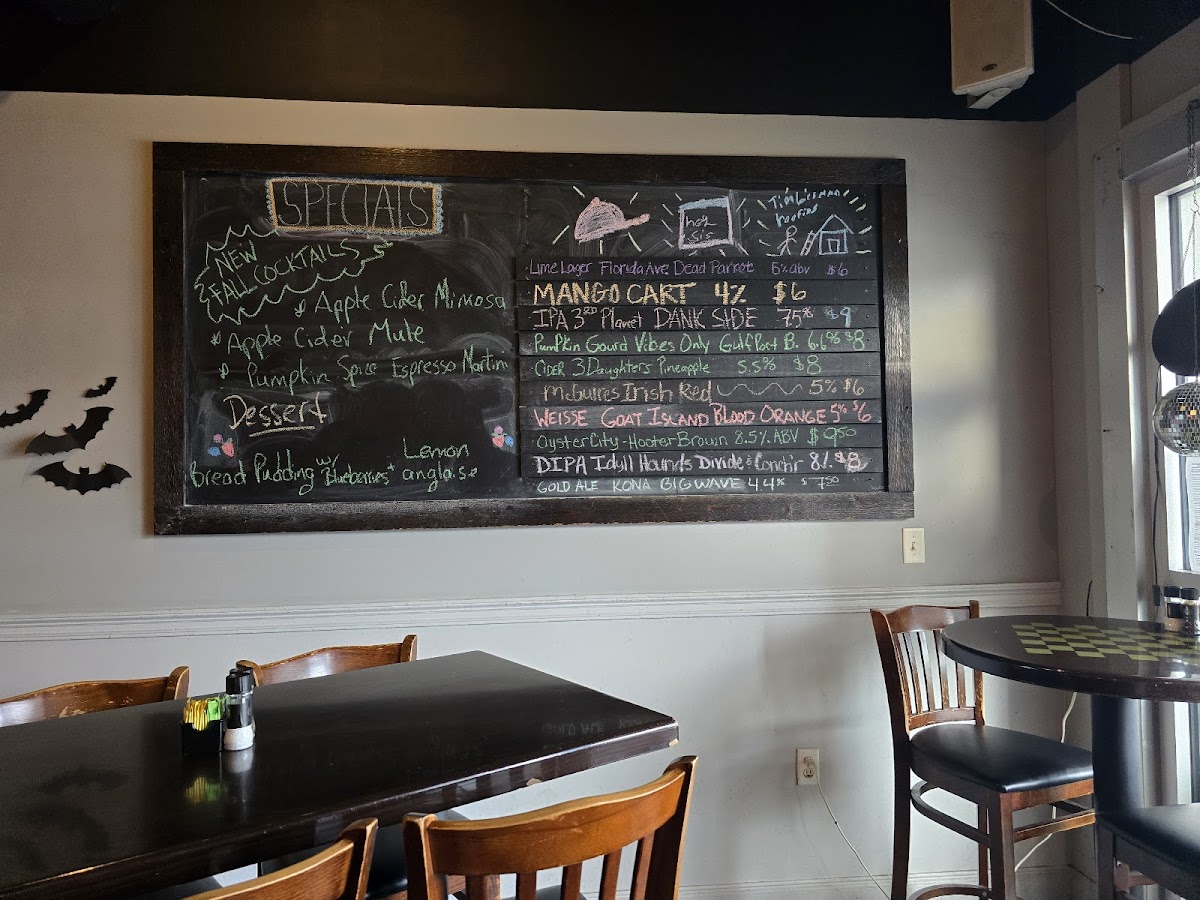 SPECIALS
NEW
FALL COCKTAILS
Apple Cider Mimosa
Apple Cider Mule
Pumpkin Spice Espresso Martini
Dessert
Bread Pudding w/ Blueberries + Lemon anglaise
Lime Lager Florida Ave Dead Parrot 5% ABV $6
MANGO CART 4% $6
IPA 3RD Planet DANK SIDE 7.5% $9
Pumpkin Gourd Vibes Only Gulf Port B. 6.6% $8
CIDER 3 Daughters Pineapple 5.5% $8
McGuires Irish Red 5% $6
WEISSE GOAT ISLAND BLOOD ORANGE 5% $6
Oyster City - Hooter Brown 8.5% ABV $9.50
DIPA Idyll Hounds Divide & Conch'r 8% $8
GOLD ALE KONA BIG WAVE 4.4% $7.50